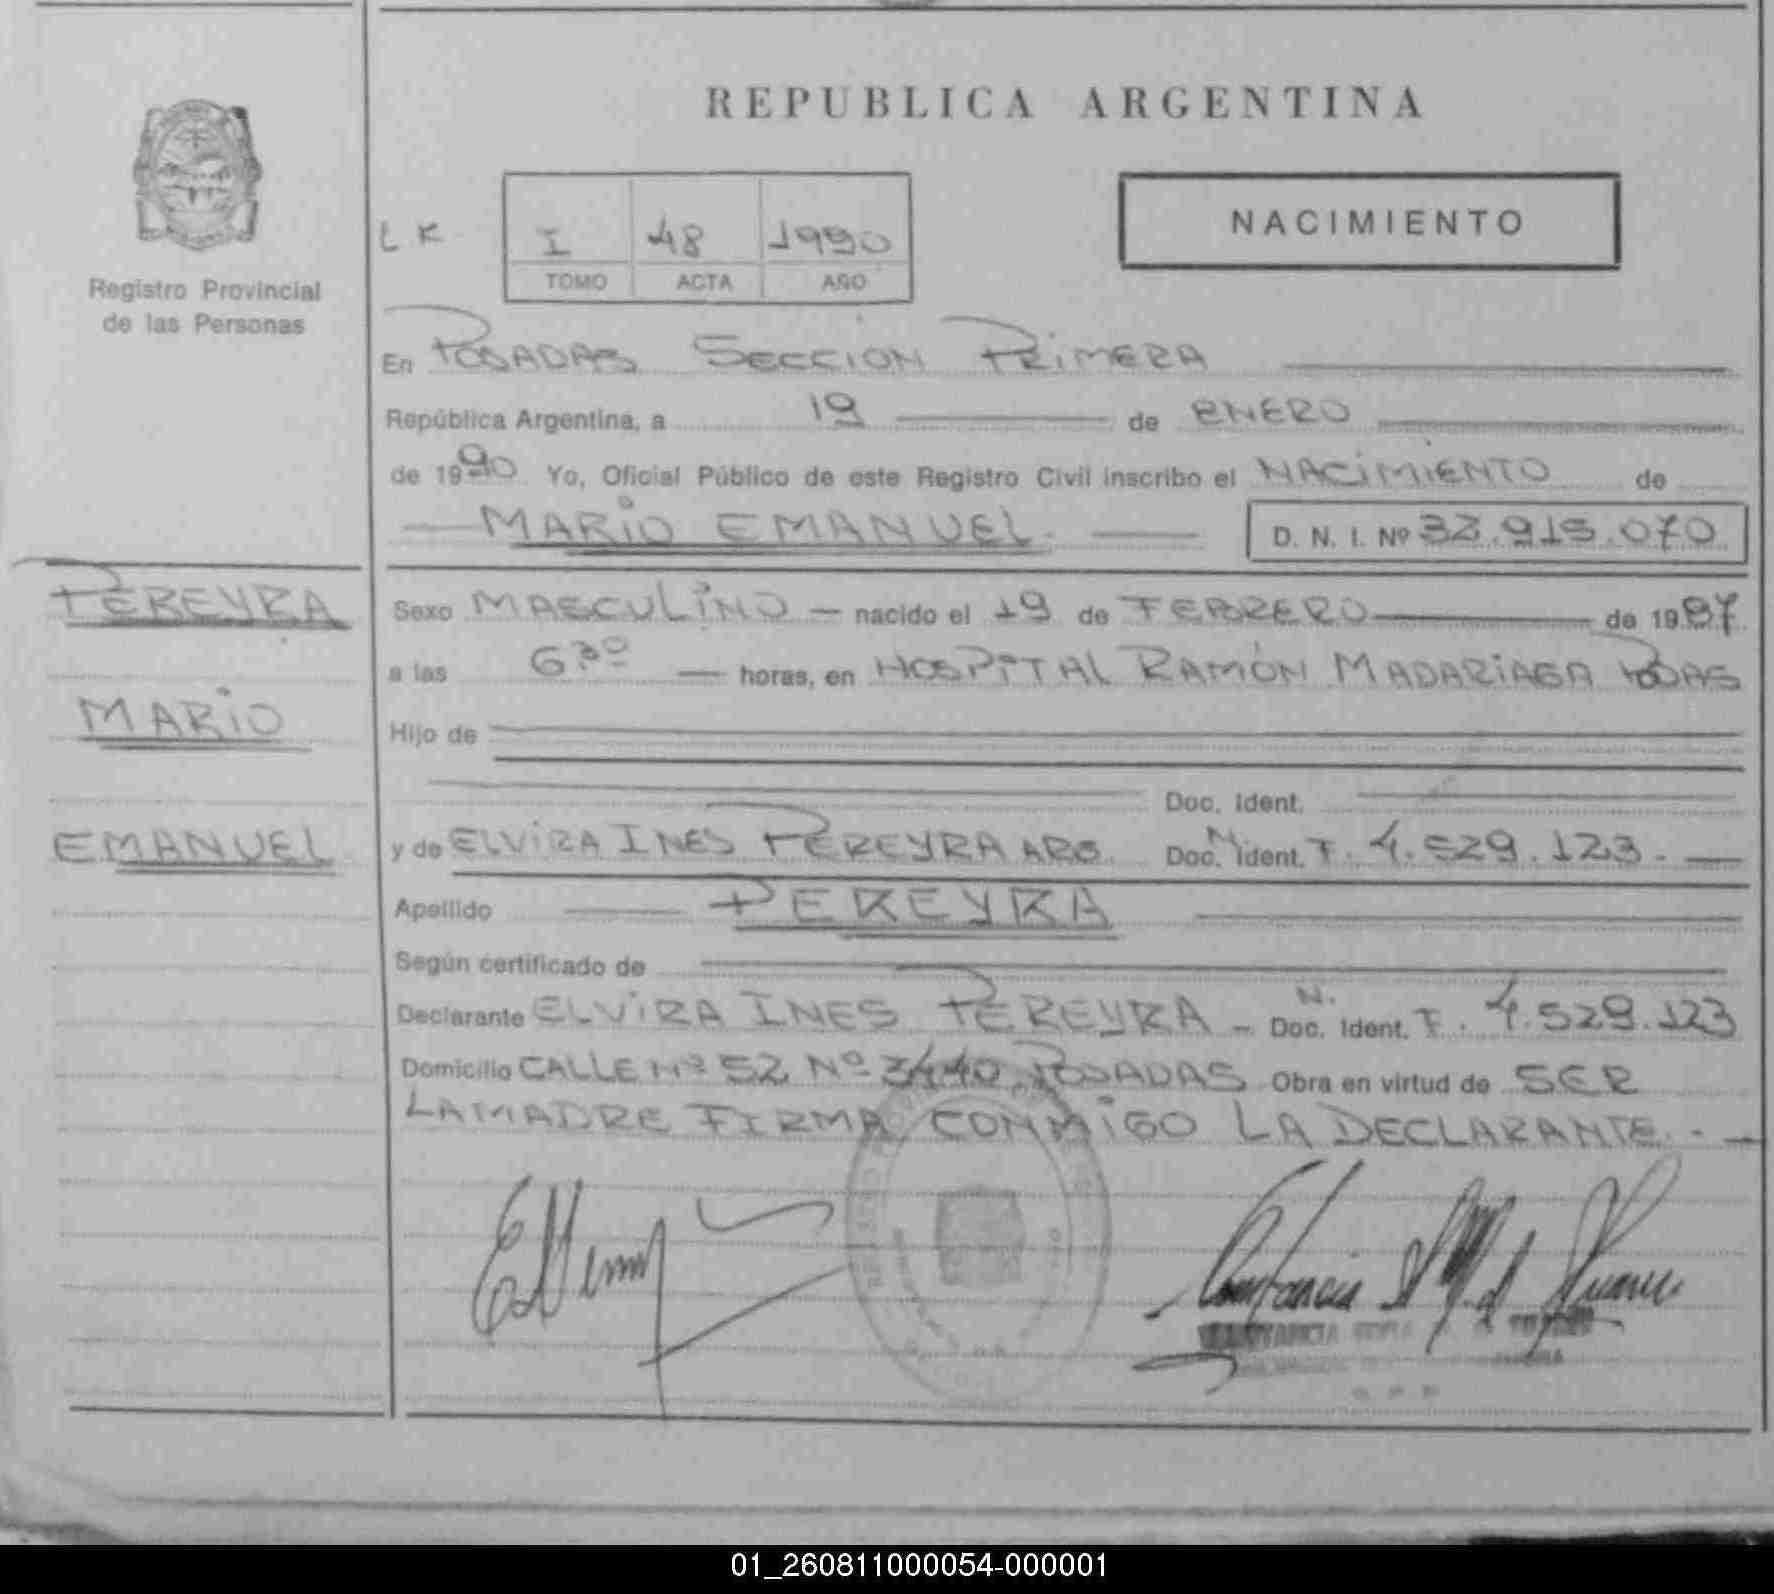 REPUBLICA ARGENTINA
NACIMIENTO
LK I 48 1990
TOMO ACTA AÑO
Registro Provincial
de las Personas
En POSADAS SECCION PRIMERA
República Argentina, a 19 de ENERO
de 1990 Yo, Oficial Público de este Registro Civil inscribo el NACIMIENTO de
MARIO EMANUEL.
D. N. I. Nº 32.915.070
PEREYRA
MARIO
EMANUEL
Sexo MASCULINO — nacido el 19 de FEBRERO de 1987
a las 6 30 — horas, en HOSPITAL RAMÓN MADARIAGA
Hijo de
Doc. Ident.
y de ELVIRA INES PEREYRA ARG. Doc. Ident. F. 4.529.123. —
Apellido PEREYRA
Según certificado de
Declarante ELVIRA INES PEREYRA — Doc. N. Ident. F. 4.529.123
Domicilio CALLE Nº 52 Nº 3440 POSADAS Obra en virtud de SER
LA MADRE FIRMA CONMIGO LA DECLARANTE. - —
01_260811000054-000001